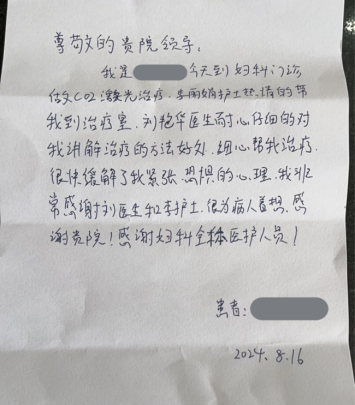 尊敬的贵院领导:
我是 今天到妇科门诊
做CO2激光治疗. 李丽娟护士热情的带
我到治疗室. 刘艳华医生而耐心仔细的对
我讲解治疗的方法好处. 细心帮我治疗.
很快缓解了我紧张.恐惧的心理. 我非
常感谢刘医生和李护士. 很为病人着想. 感
谢贵院!感谢妇科全体医护人员!
患者:
2024.8.16